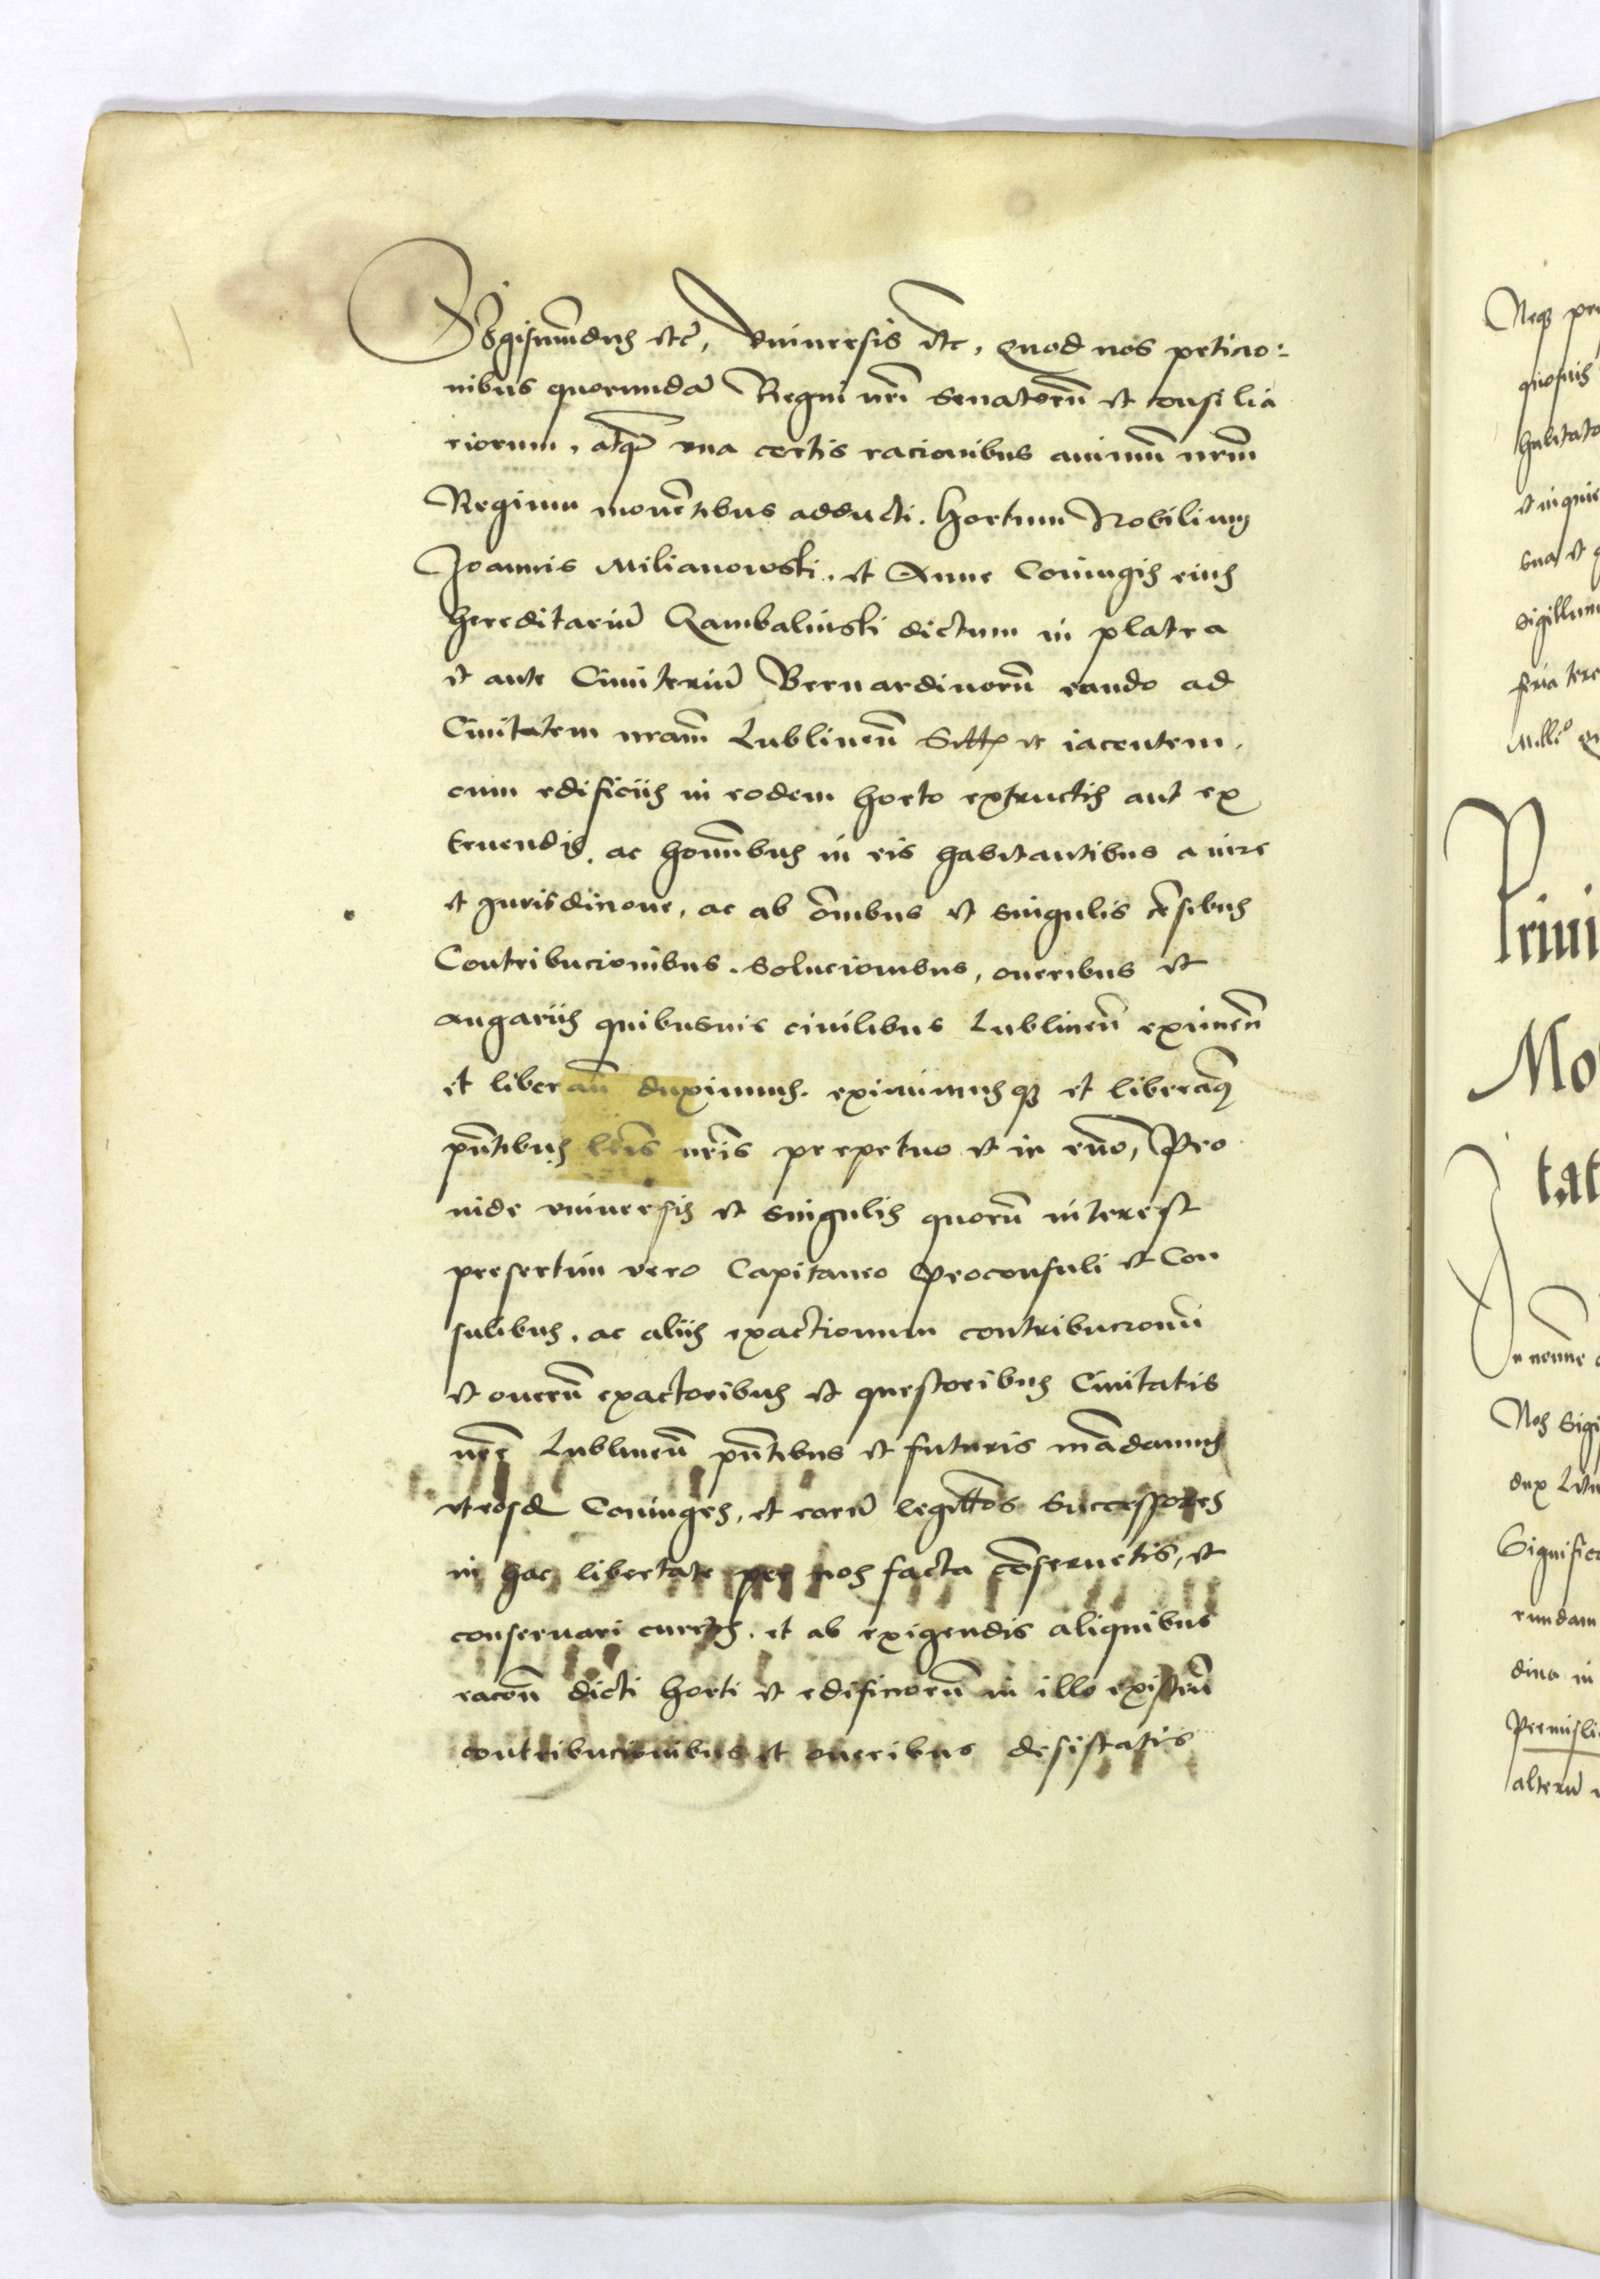 Sigismūdus etc̄, Vniuersis etc̄, quod nos peticio:
nibus quorundā Regni nr̄i Senatorū et consilia
riorum, atq̄ una certis racionibus animū nr̄m
Regium mouētibus adducti. hortum Nobilium
Joannis Milianowski, et Anne Coniugis eius
hereditariū Kambalinski dictum in platea
et ante Cimiteriū Bernardinorū eundo ad
Ciuitatem nr̄am Lublineñ iacentem.
cum edificiis in eodem horto extructis aut ex
truendis, ac homībus in eis habitantibus a iure
et Jurisdicione, ac ab ōmibus et singulis cēsibus
Contribucionibus. solucionibus, oneribus et
angariis quibusuis ciuilibus Lublineñ eximeñ
et liberañ duximus. eximimusq3 et liberamꝰ
pñtibus lr̄is nr̄is perpetuo et in euo, Pro
inde vniuersis et singulis quorū interest
presertim vero Capitaneo Proconsuli et Con
sulibus, ac aliis exactionum contribucionū
et onerū exactoribus et questoribus Ciuitatis
nr̄e Lublineñ pñtibus et futuris mādamus
ut eosd Coniuges, et eorū legittōs Successores
in hac libertate per nos facta cōseruetis, et
conseruari curetis. et ab exigendis aliquibus
racoñ dicti horti et edificiorū in illo existeñ
contribucionibus et oneribus desistatis
Neq3 pre
quouis
habitato
et inquie
sua et
sigillum
feria terc
Milliō
Priui
Mo
tat
In nomine
Nos Sigi
dux Litu
Significa
rundam
dina in
Premisli
alterū